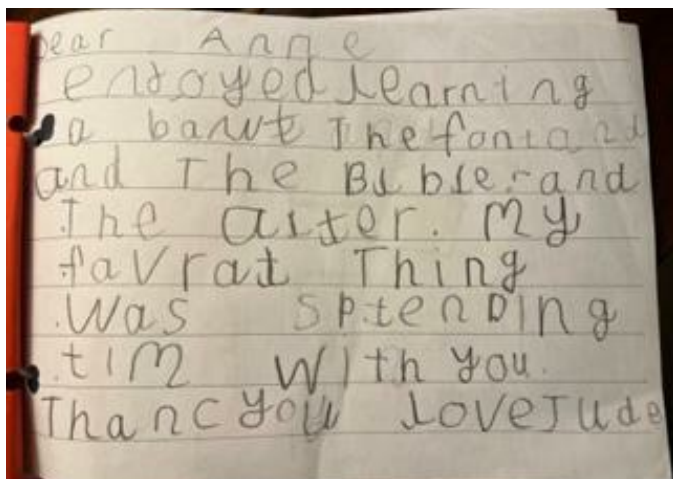 Dear Anne
enjoyed learning
a bawt The font and
and The Bible and
The alter. My
favrat Thing
was sptending
tim with you.
Thanc you love Jude